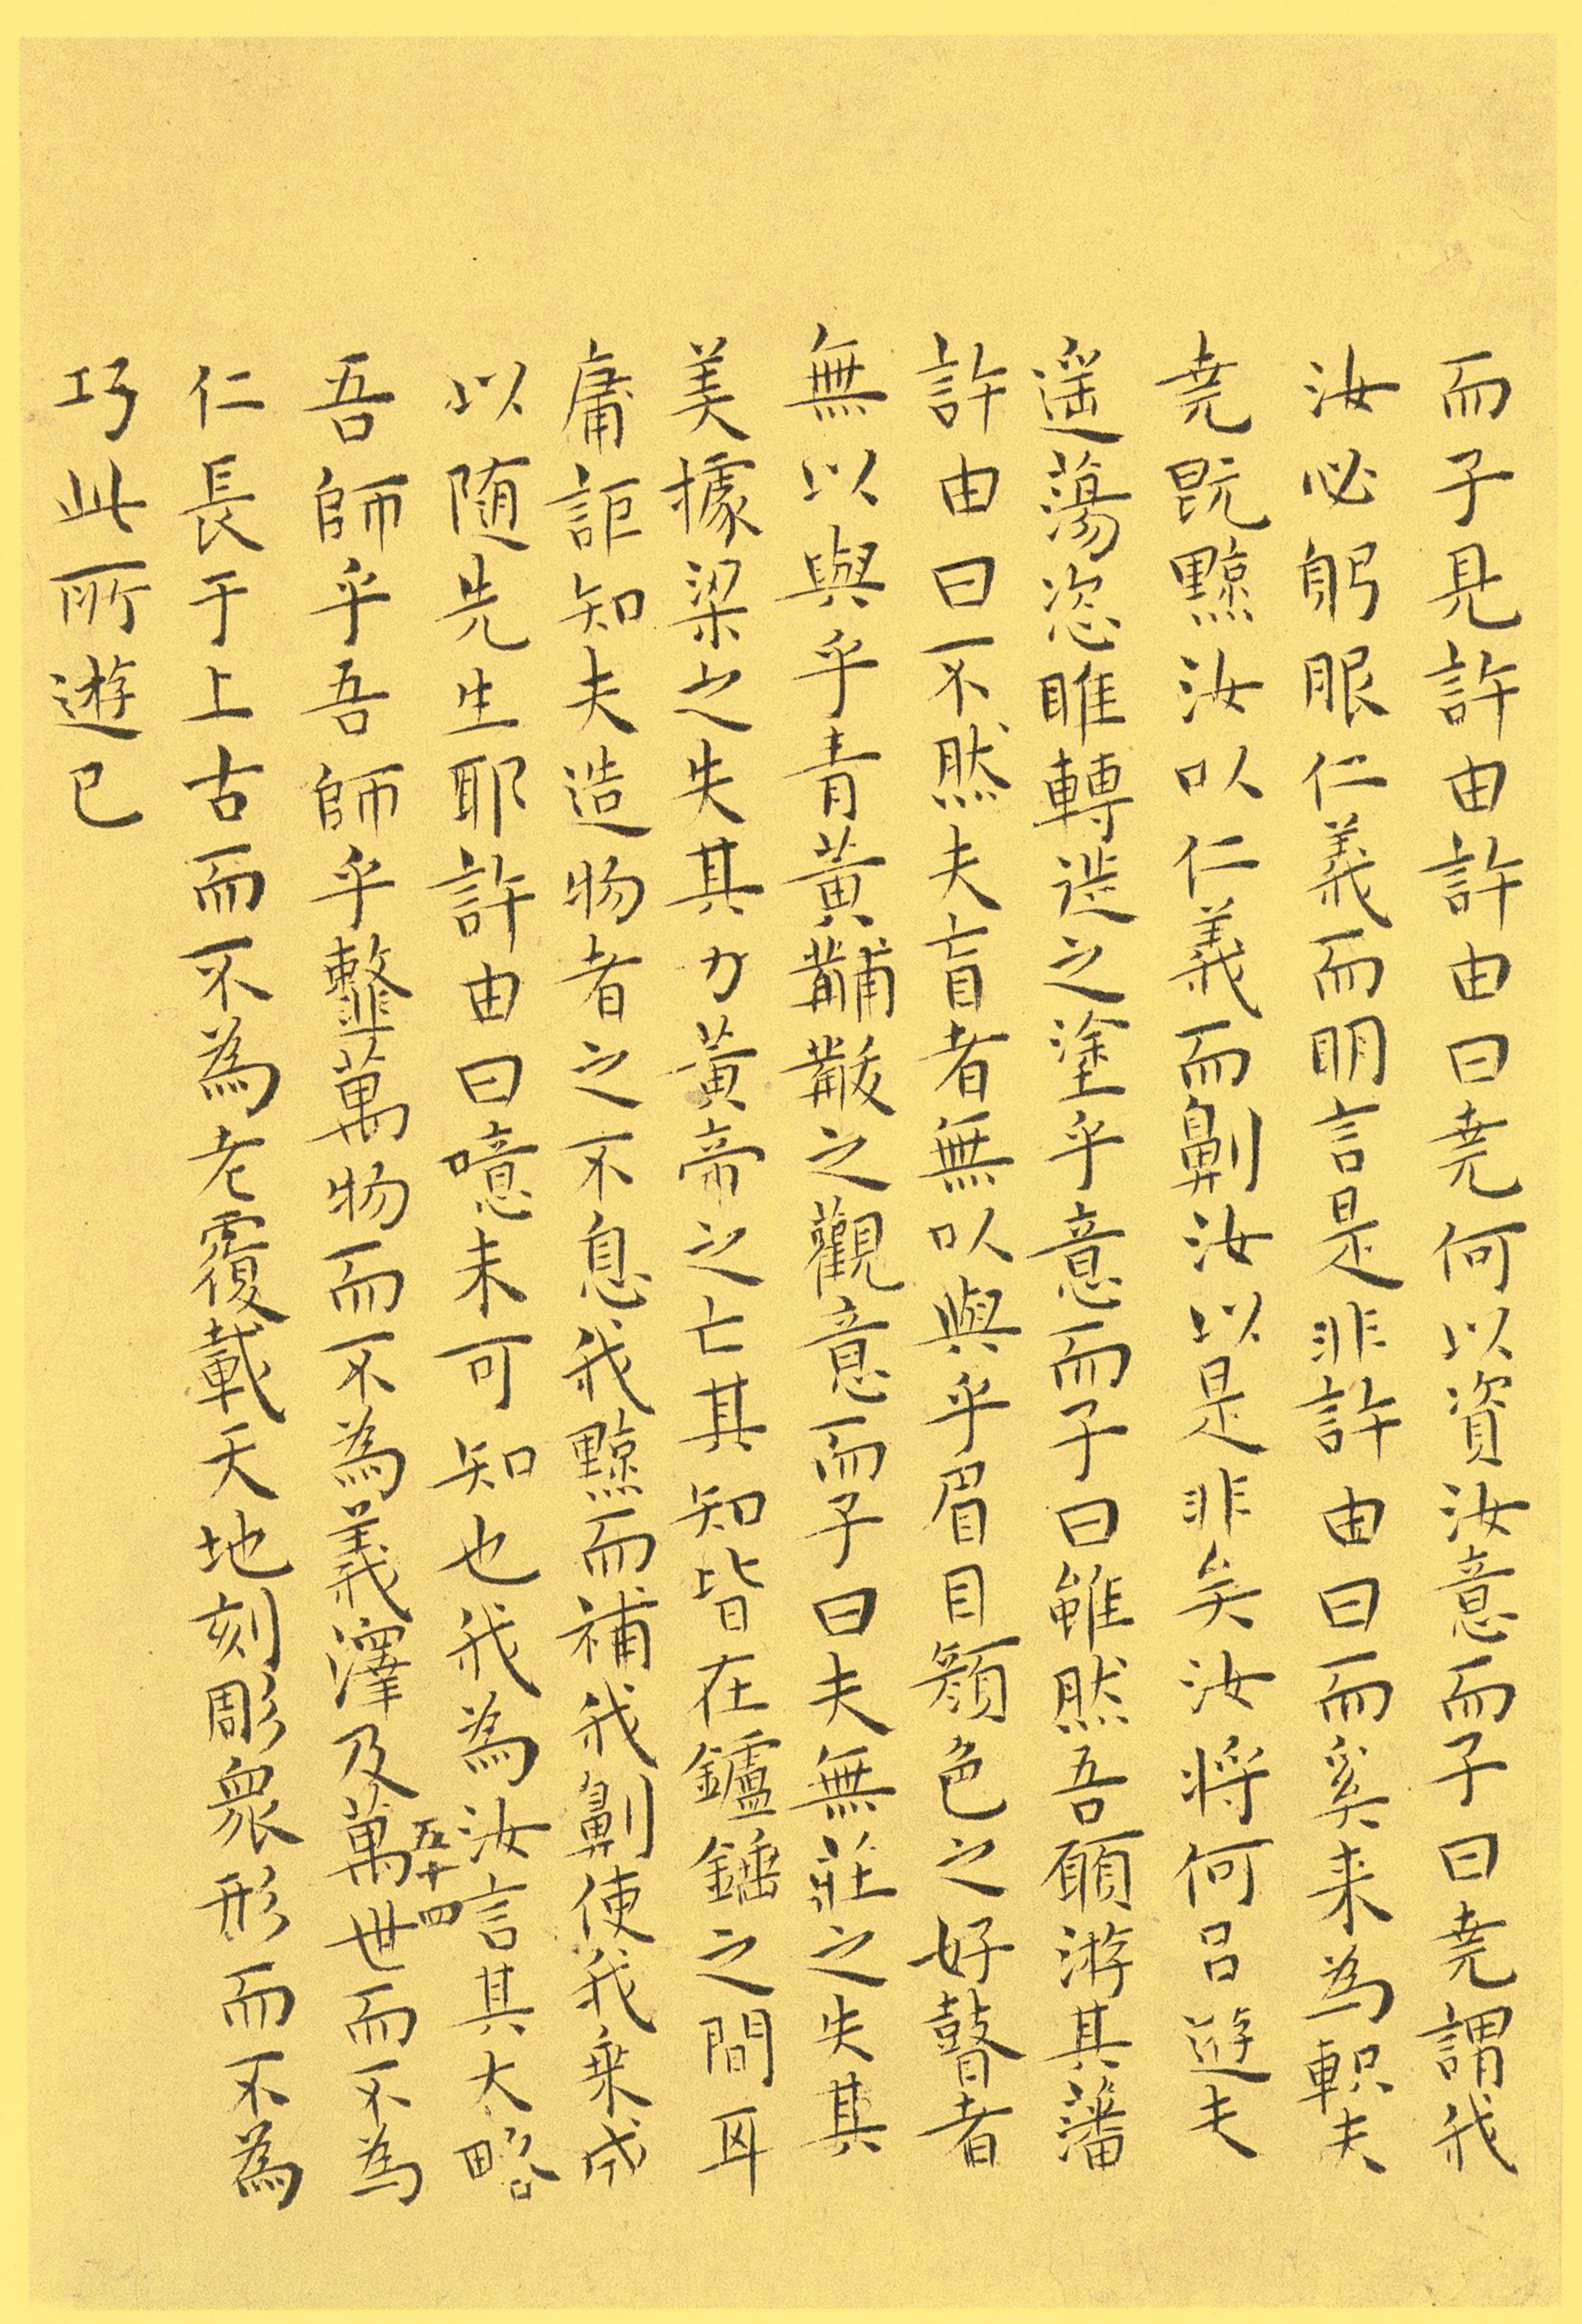 而子見許由許由曰堯何以資汝意而子曰堯謂我
汝必躬服仁義而明言是非許由曰而奚来為軹夫
堯既黥汝以仁義而劓汝以是非矣汝将何㠯遊夫
遥蕩恣睢轉徙之塗乎意而子曰雖然吾願游其藩
許由曰不然夫盲者無以與乎眉目顏色之好瞽者
無以與乎青黃黼黻之觀意而子曰夫無莊之失其
美據梁之失其力黃帝之亡其知皆在鑪錘之間耳
庸詎知夫造物者之不息我黥而補我劓使我乗成
以随先生耶許由曰噫未可知也我為汝言其大略
吾師乎吾師乎䪠萬物而不為義澤及萬世而不為
仁長于上古而不為老覆載天地刻彫衆形而不為
巧此所遊已
五十四